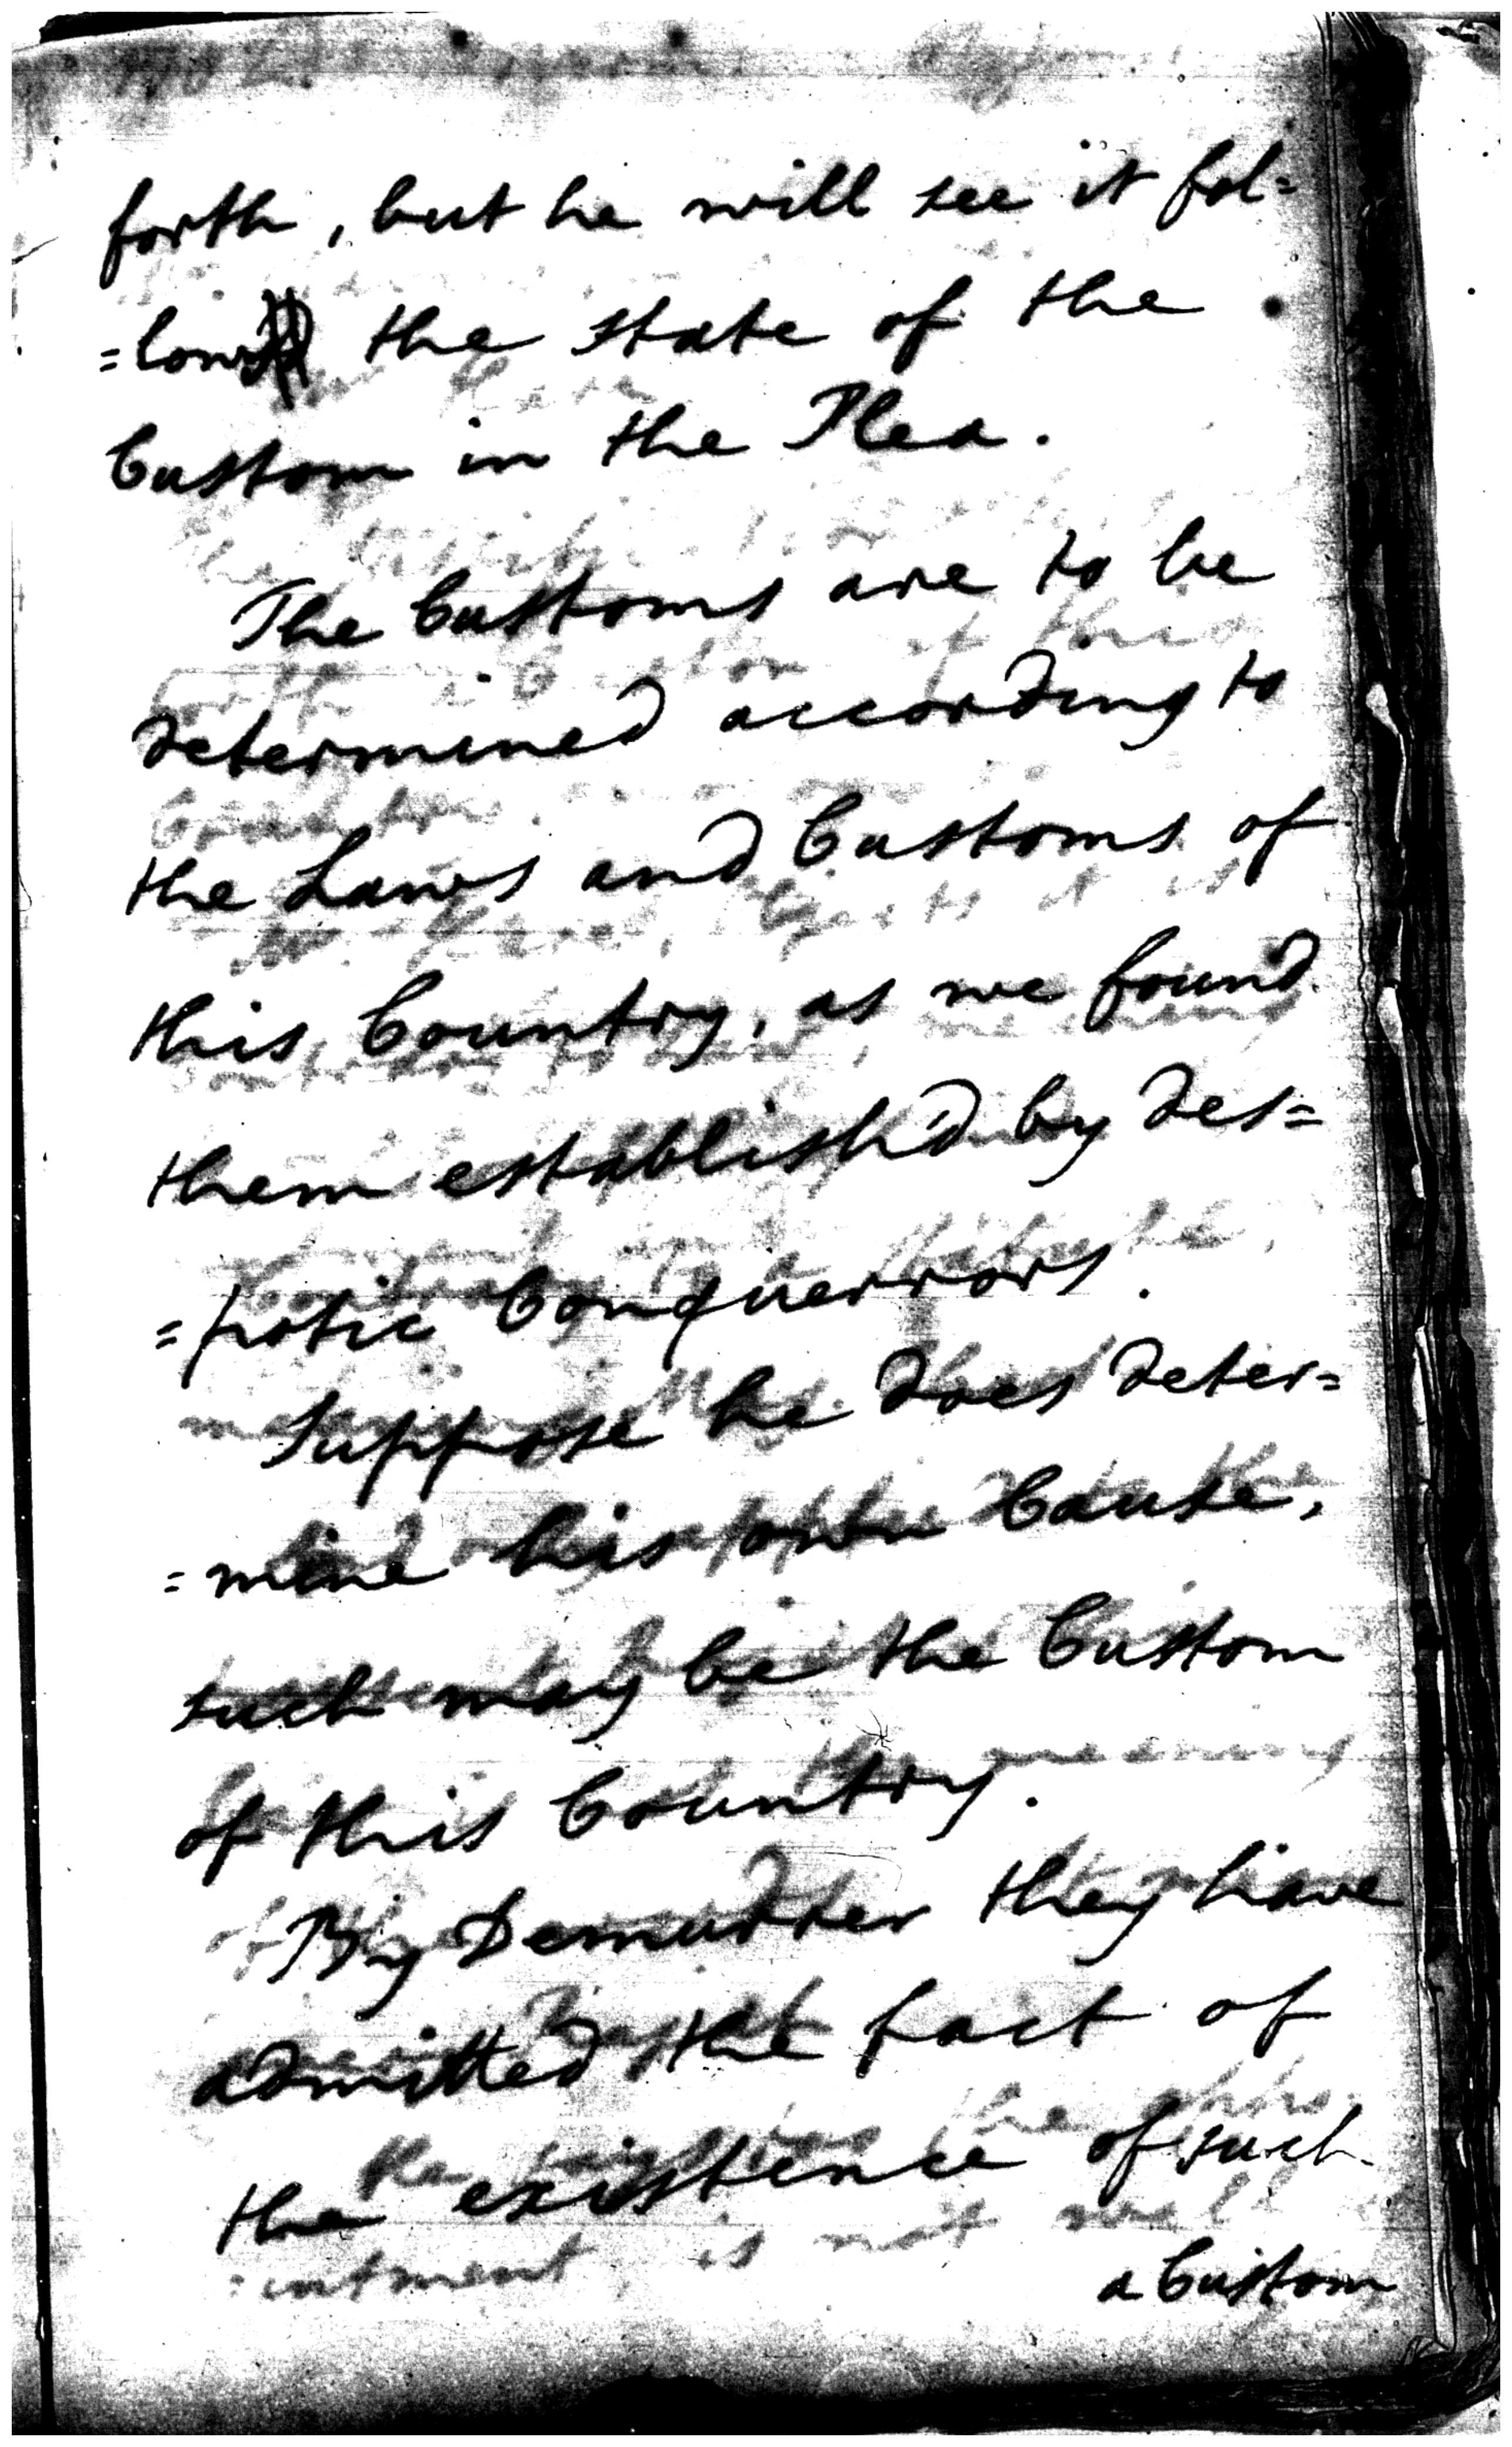 forth, but he will see it fol=
=lows the state of the
Custom in the Plea.
The Customs are to be
determined according to
the Laws and Customs of
this Country, as we found
them establish'd by des=
=potic Conquerrors.
Suppose he does deter=
=mine his own Cause,
such may be the Custom
of this Country.
By Demurrer they have
admitted the fact of
the existence of such
a Custom